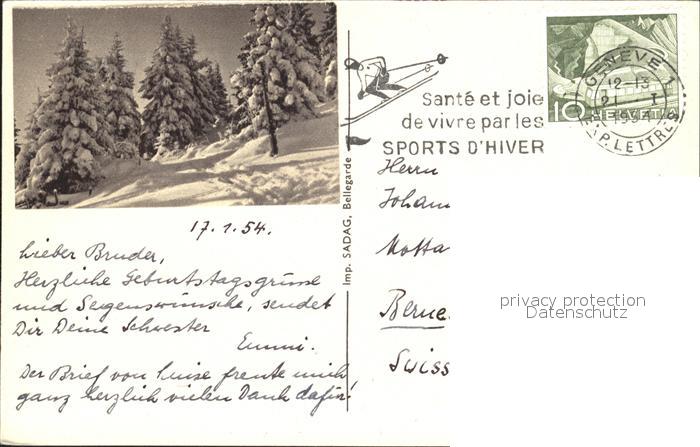 Santé et joie
de vivre par les
SPORTS D'HIVER
GENÈVE 1
12-13
21. I
1954
EXP. LETTRES
10 HELVETIA
Imp. SADAG, Bellegarde
17.1.54.
Lieber Bruder,
Herzliche Geburtstagsgrüsse
und Segenswünsche, sendet
Dir Deine Schwester
Emmi.
Der Brief von Luise freute mich
ganz herzlich vielen Dank dafür!
Herrn
Joham
Motta
Berne
Swiss
privacy protection
Datenschutz